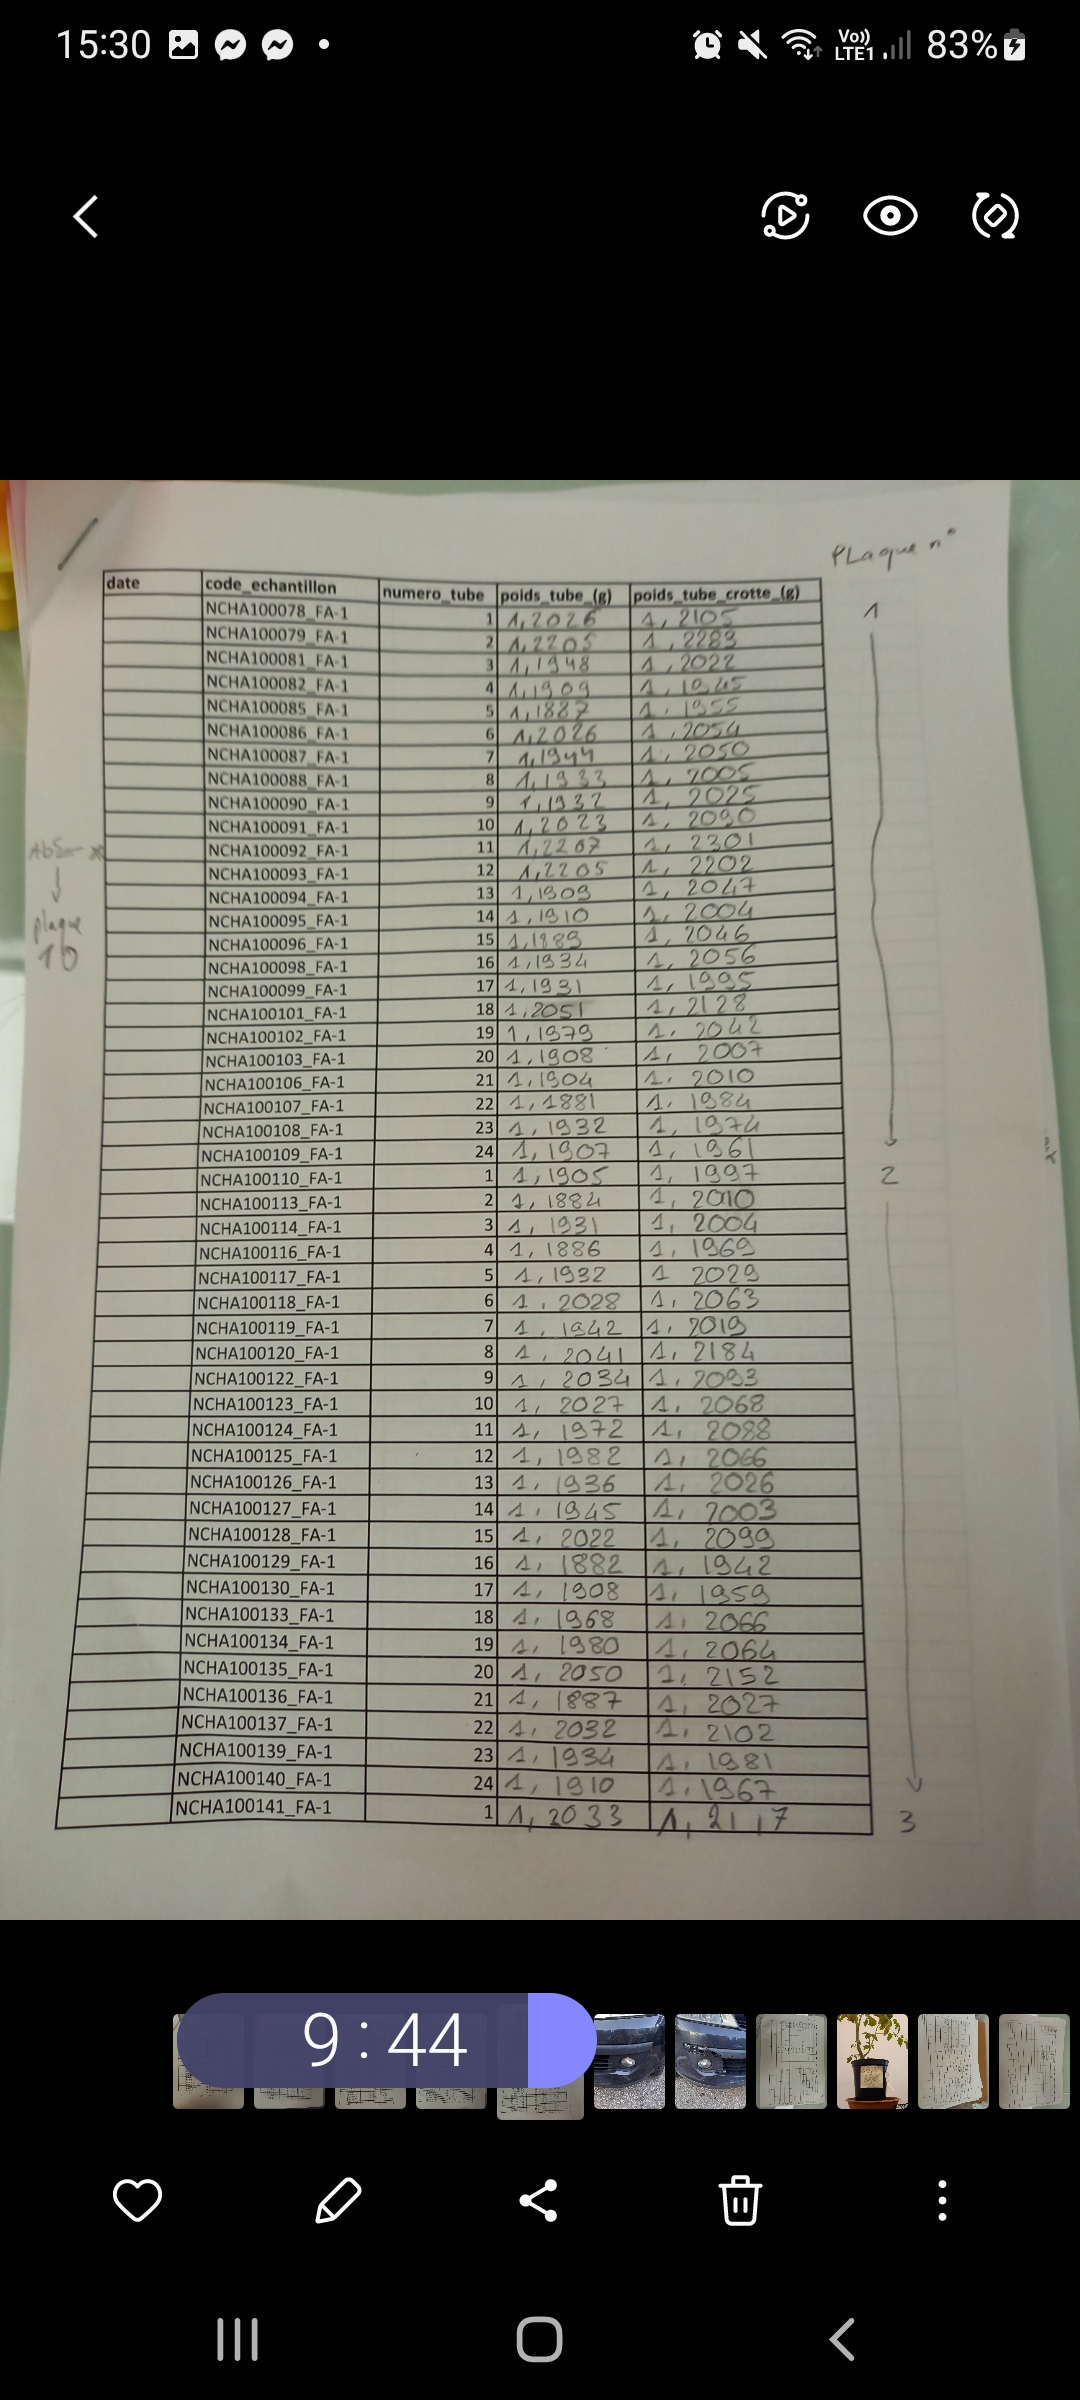 15:30
Vo)) LTE1 83%
PLaque n°
date code_echantillon numero_tube poids_tube_(g) poids_tube_crotte_(g)
NCHA100078_FA-1 1 1,2026 1,2105 1
NCHA100079_FA-1 2 1,2205 1,2283
NCHA100081_FA-1 3 1,1948 1,2022
NCHA100082_FA-1 4 1,1909 1,1945
NCHA100085_FA-1 5 1,1887 1.1955
NCHA100086_FA-1 6 1,2026 1,2054
NCHA100087_FA-1 7 1,1944 1,2050
NCHA100088_FA-1 8 1,1933 1,2005
NCHA100090_FA-1 9 1,1932 1,2025
NCHA100091_FA-1 10 1,2023 1,2090
NCHA100092_FA-1 11 1,2207 1,2301
NCHA100093_FA-1 12 1,2205 1,2202
NCHA100094_FA-1 13 1,1909 1,2047
plaque
10
NCHA100095_FA-1 14 1,1910 1,2004
NCHA100096_FA-1 15 1,1889 1,2046
NCHA100098_FA-1 16 1,1934 1,2056
NCHA100099_FA-1 17 1,1931 1,1995
NCHA100101_FA-1 18 1,2051 1,2128
NCHA100102_FA-1 19 1,1979 1.2042
NCHA100103_FA-1 20 1,1908 1,2007
NCHA100106_FA-1 21 1,1904 1.2010
NCHA100107_FA-1 22 1,1881 1.1984
NCHA100108_FA-1 23 1,1932 1,1974
NCHA100109_FA-1 24 1,1907 1,1961
NCHA100110_FA-1 1 1,1905 1,1997 2
NCHA100113_FA-1 2 1,1884 1,2010
NCHA100114_FA-1 3 1,1931 1,2004
NCHA100116_FA-1 4 1,1886 1,1969
NCHA100117_FA-1 5 1,1932 1 2029
NCHA100118_FA-1 6 1.2028 1,2063
NCHA100119_FA-1 7 1.1942 1,2019
NCHA100120_FA-1 8 1,2041 1,2184
NCHA100122_FA-1 9 1,2034 1,2093
NCHA100123_FA-1 10 1,2027 1,2068
NCHA100124_FA-1 11 1,1972 1,2088
NCHA100125_FA-1 12 1,1982 1,2066
NCHA100126_FA-1 13 1,1936 1,2026
NCHA100127_FA-1 14 1.1945 1,2003
NCHA100128_FA-1 15 1,2022 1,2099
NCHA100129_FA-1 16 1,1882 1,1942
NCHA100130_FA-1 17 1,1908 1,1959
NCHA100133_FA-1 18 1,1968 1,2066
NCHA100134_FA-1 19 1,1980 1,2064
NCHA100135_FA-1 20 1,2050 1,2152
NCHA100136_FA-1 21 1,1887 1,2027
NCHA100137_FA-1 22 1,2032 1,2102
NCHA100139_FA-1 23 1,1934 1,1981
NCHA100140_FA-1 24 1,1910 1.1967
NCHA100141_FA-1 1 1,2033 1,2117 3
9:44